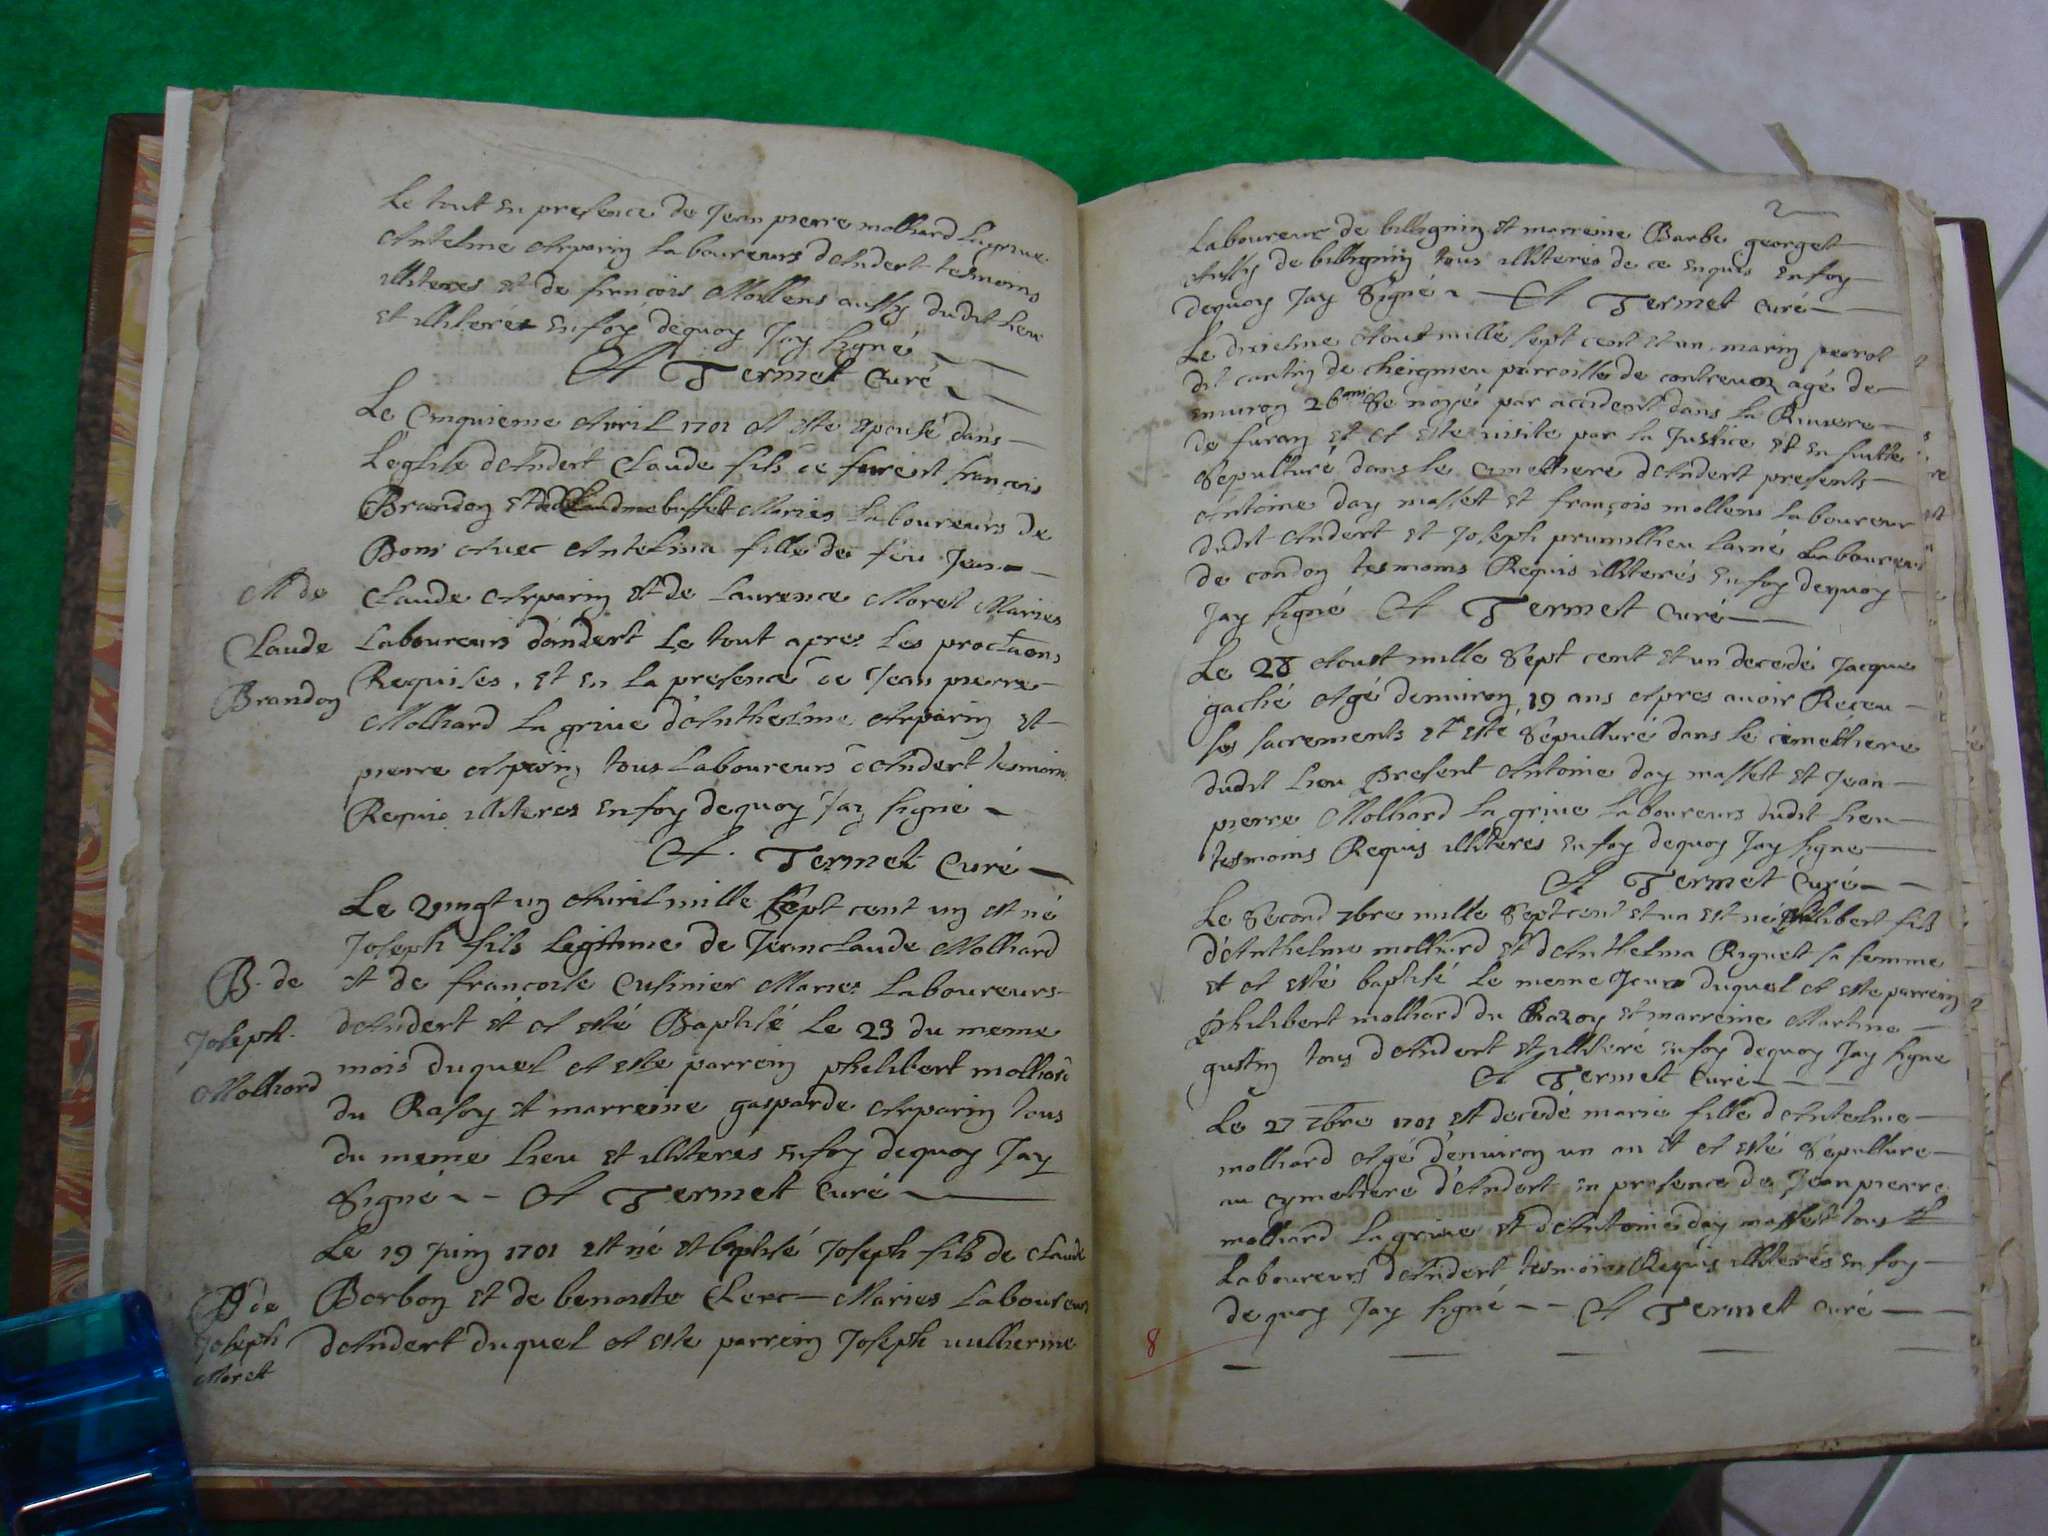 Le tout en presence de Jean pierre molliard Lagrive
Antelme Arparin Laboureurs dAndert tesmoins
illiteres et de françois Mollens aussy dudit Lieu
et illiteres enfoy dequoy Jay signé
A Termet Curé
Le Cinquieme Avril 1701 A este Epousé dans
Leglise dAndert Claude fils de feu françois
Brandon et Mariez Laboureurs de
Bons Avec Antelma fille de feu Jean
Claude Arparin et de Laurence Moret Mariez
Laboureurs dandert Le tout apres Les
Requises, et en la presence de Jean pierre
Molliard La grive d'Anthelme Arparin et
pierre Arparin tous Laboureurs dAndert tesmoins
Requis illiteres enfoy dequoy Jay signé
A. Termet Curé
M de
Claude
Brandon
Le vingt un Avril mille sept cent un est né
Joseph fils Legitime de Jeanclaude Molliard
et de francoise Cusinier Mariez Laboureurs
dAndert et A esté Baptisé Le 23 du meme
mois duquel A este parrein philibert molliard
du Rasoy et marreine gasparde Arparin tous
du meme Lieu et illiteres enfoy dequoy Jay
Signé A Termet Curé
B. de
Joseph
Molliard
Le 19 Juin 1701 est né et Bptisé Joseph fils de Claude
Borbon et de benoiste Clerc Mariez Laboureurs
dAndert duquel A este parrein Joseph vullierme
B de
Joseph
Moret
2
Laboureur de billignin et marreine Barbe georget
Aussy de billignin tous illiterés de ce enquis enfoy
dequoy Jay Signé A Termet Curé
Le dixiesme Aoust mille sept cent et un marin perrot
dit cantin de cheigmeu parroisse de contrevoz agé de
environ 26 ans Se noyé par accident dans la Riviere
de furan et A este visite par la Justice et en suitte
Sepulturé dans le Cimettiere dAndert presents
Antoine day massett et françois mollens Laboureur
dudit Andert et Joseph prumillieu Lainé Laboureur
de condon tesmoins Requis illiterés enfoy dequoy
Jay signé A Termet Curé
Le 28 Aoust mille Sept cent et un decedé Jacque
gaché Agé denviron 19 ans Apres avoir Receu
ses sacrements et A esté Sepulturé dans le cimettiere
dudit Lieu Present Antoine day massett et Jean
pierre Molliard La grive Laboureurs dudit Lieu
tesmoins Requis illiteres enfoy dequoy Jay signe
A Termet Curé
Le Second 7bre mille Sept cent et un est né philibert fils
d'Anthelme molliard et dAnthelma Riquet sa femme
et A esté baptisé Le meme Jour duquel A este parrein
philibert molliard du Razoy et marreine Martine
gustin tous dAndert et illiteré enfoy dequoy Jay signe
A Termet Curé
Le 27 7bre 1701 est decedé marie fille dAntelme
molliard Agé d'environ un an et A esté Sepulture
au cymetiere d'Andert en presence de Jean pierre
molliard La grive et dAntoine day massett tous
Laboureurs dAndert tesmoins Requis illiterés enfoy
de quoy Jay signé A Termet Curé
8